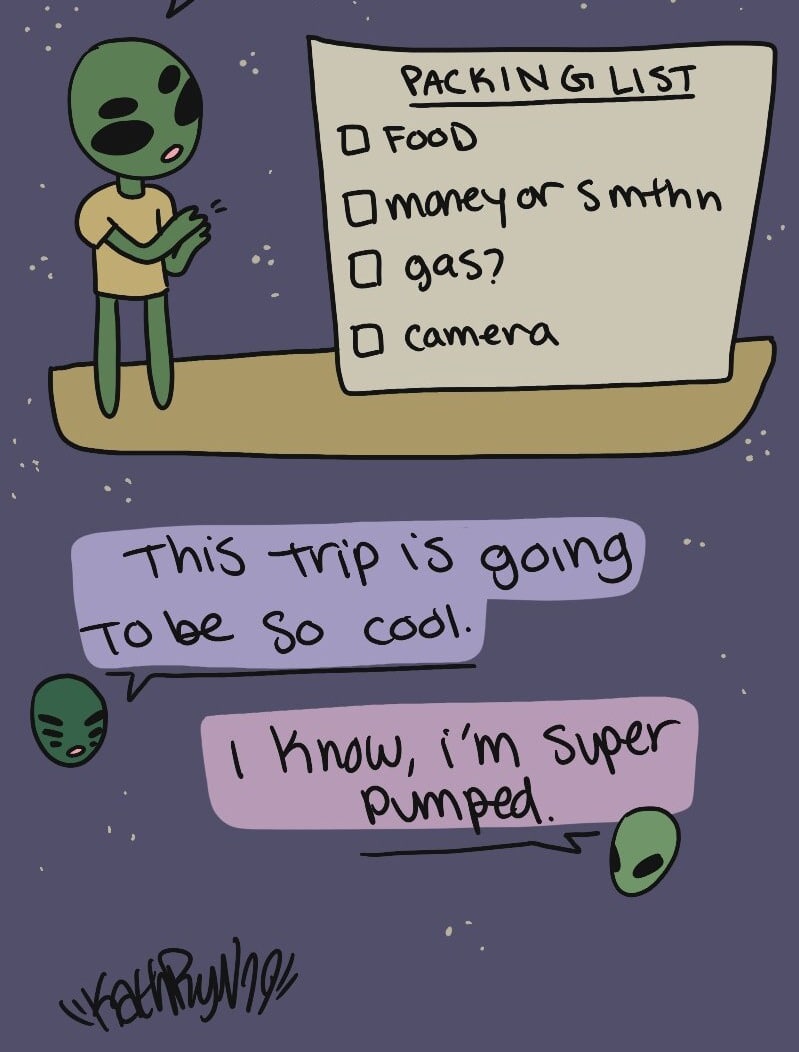 PACKING LIST
FOOD
money or smthn
gas?
camera
This trip is going
To be so cool.
I know, i'm super
pumped.
KathRyN19